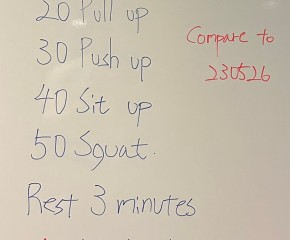 20 Pull up
30 Push up
40 Sit up
50 Squat.
Rest 3 minutes
Compare to
230526